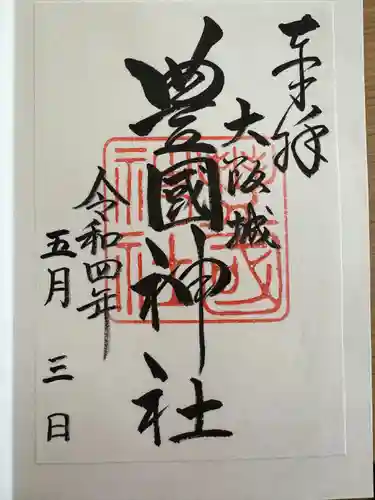 奉拝
大阪城
豊國神社
令和四年
五月三日